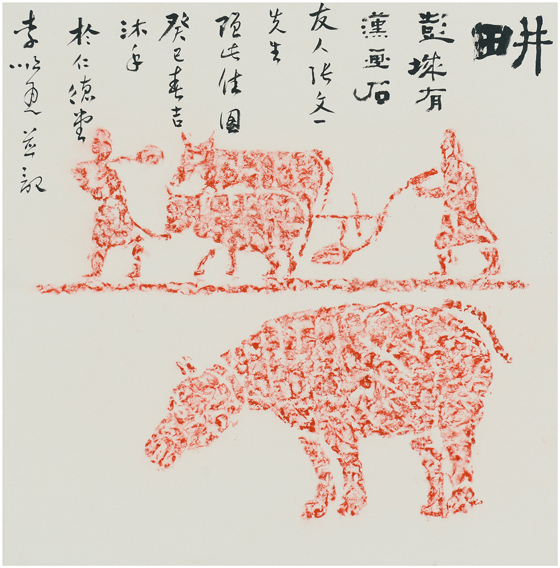 畊
彭城有
漢画石
友人張文一
先生
此佳圖
癸巳春吉
沐手
於仁德堂
李以並記